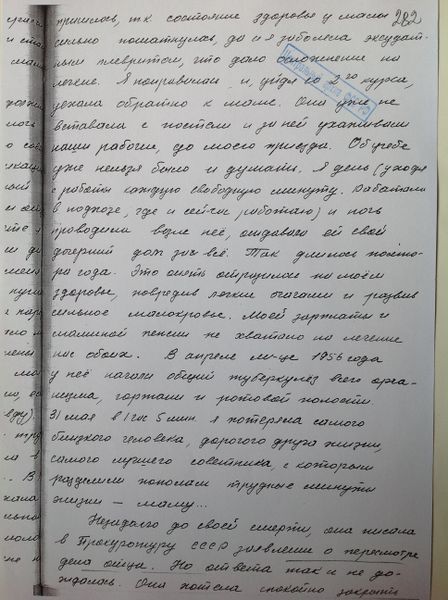 пришлось, т.к состояние здоровья у мамы 282
сильно пошатнулось, да и я заболела экссудат-
ным плевритом, что дало осложнение на
легкие. Я поправилась и, уйдя со 2го курса,
уехала обратно к маме. Она уже не
вставала с постели и за ней ухаживали
наши рабочие, до моего приезда. Об учебе
уже нельзя было и думать. Я день (уходя
с работы каждую свободную минуту. Работала
в подхозе, где и сейчас работаю) и ночь
проводила возле неё, отдавала ей свой
дочерний долг за всё. Так длилось полто-
ра года. Это опять отразилось на моём
здоровье, повредив легкие очагами и развив
сильное малокровье. Моей зарплаты и
маминой пенсии не хватало на лечение
нас обоих. В апреле м-це 1956 года
у неё начали общий туберкулез всего орга-
низма, гортани и ротовой полости.
31 мая в 1 час 5 мин. я потеряла самого
близкого человека, дорогого друга жизни,
самого лучшего советника, с которым
разделили пополам трудные минуты
жизни — маму...
Незадолго до своей смерти, она писала
в Прокуратуру СССР заявление о пересмотре
дела отца. Но ответа так и не до-
ждалась. Она хотела спокойно закрыть